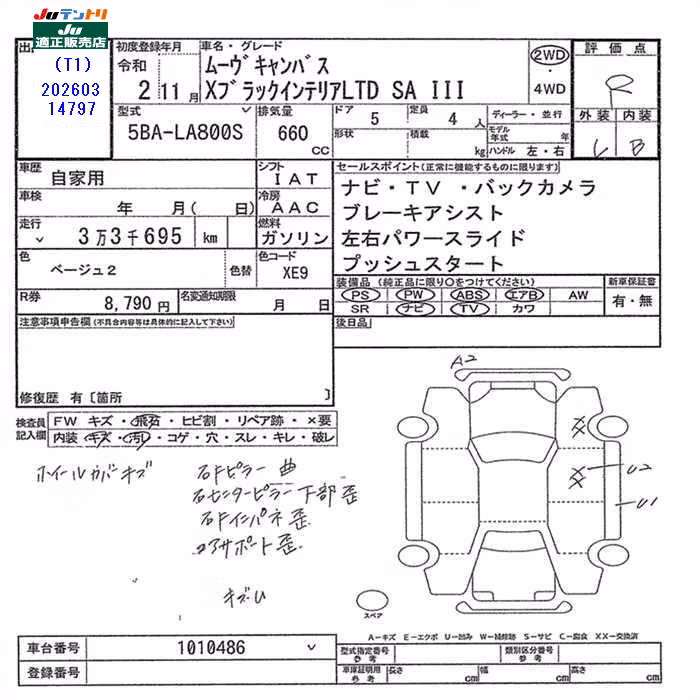 JUテントリ
JU
適正販売店
出
(T1)
202603
14797
初度登録年月
令和
2 11月
車名・グレード
ムーヴキャンバス
XブラックインテリアLTD SA III
2WD
・
4WD
評価点
R
外装 内装
B
型式
5BA-LA800S
排気量
660
cc
ドア 5
定員 4 人
形状
積載 kg
ディーラー・並行
モデル年式 年
ハンドル 左・右
車歴
自家用
シフト
IAT
車検
年 月( 日)
冷房
AAC
走行
3万3千695 km
燃料
ガソリン
色
ベージュ2
色替
色コード
XE9
R券
8,790円
名変通知期限
月 日
セールスポイント(正常に機能するものに限ります)
ナビ・TV ・バックカメラ
ブレーキアシスト
左右パワースライド
プッシュスタート
装備品(純正品に限り○をつけてください)
PS PW ABS エアB AW
SR ナビ TV カワ
新車保証書
有・無
注意事項申告欄(不具合内容等は具体的に記入して下さい)
後日品
修復歴 有〔箇所 〕
検査員記入欄
FW キズ・飛石・ヒビ割・リペア跡・×要
内装・キズ・汚レ・コゲ・穴・スレ・キレ・破レ
A2
ホイールカバーキズ
右Fピラー曲
右センターピラー下部歪
右Fインパネ歪
コアサポート歪
キズU
U2
U1
スペア
A−キズ E−エクボ U−凹み W−補修跡 S−サビ C−腐食 XX−交換済
車台番号 1010486
登録番号
型式指定番号 参考
類別区分番号 参考
車庫証明用 参考
長さ cm 幅 cm 高さ cm